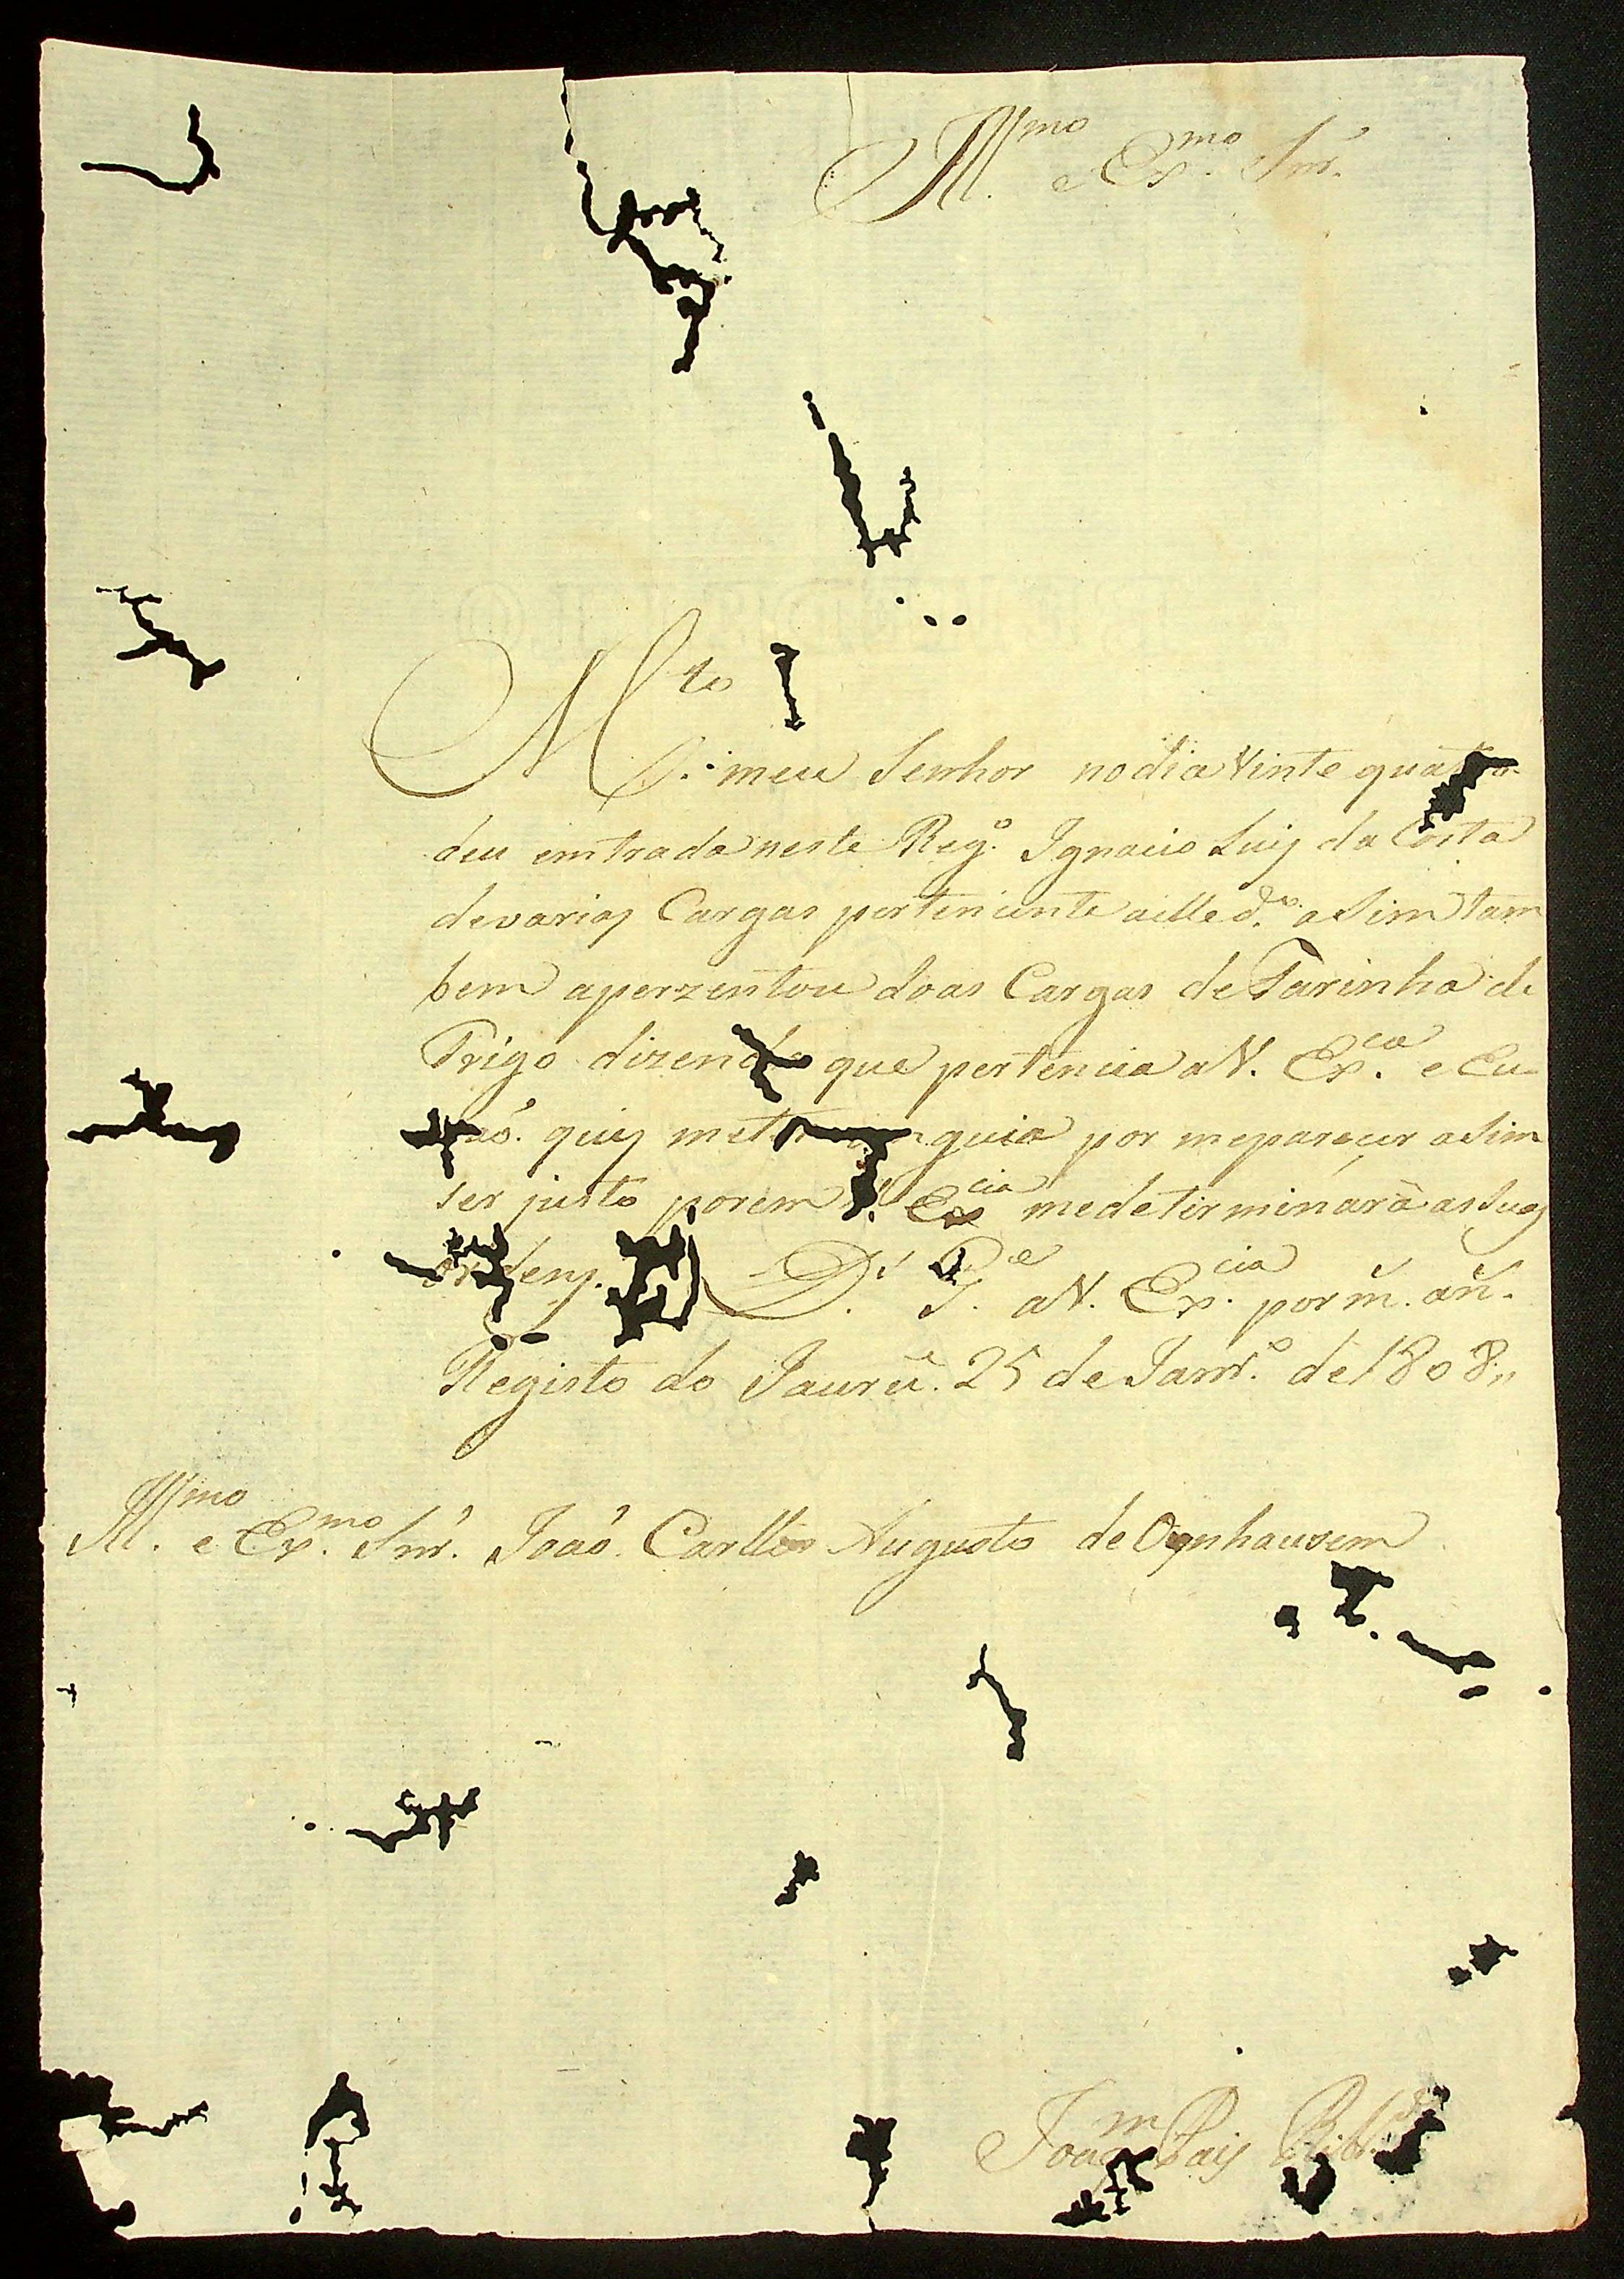 Ill.mo e Ex.mo Snr.
M.to
S.r meu Senhor no dia Vinte quatro
deu emtrada neste Reg.o Ignacio Luiz da Costa
devarias Cargas pertencente aelle d.o asim tam
bem aperzentou doas Cargas de Farinha de
Trigo dizendo que pertencia a V. Ex.ca e Eu
naõ quis meter em guia por meparecer asim
ser justo porem V. Ex.cia medetirminará as Suas
ordens. D.s G.e a V. Ex.cia por m. an.
Registo do Jaurú. 25 de Janr.o de 1808,,
Ill.mo e Ex.mo Snr. Joaõ Carllos Augusto de Oynhausem
Joaq.m Pais